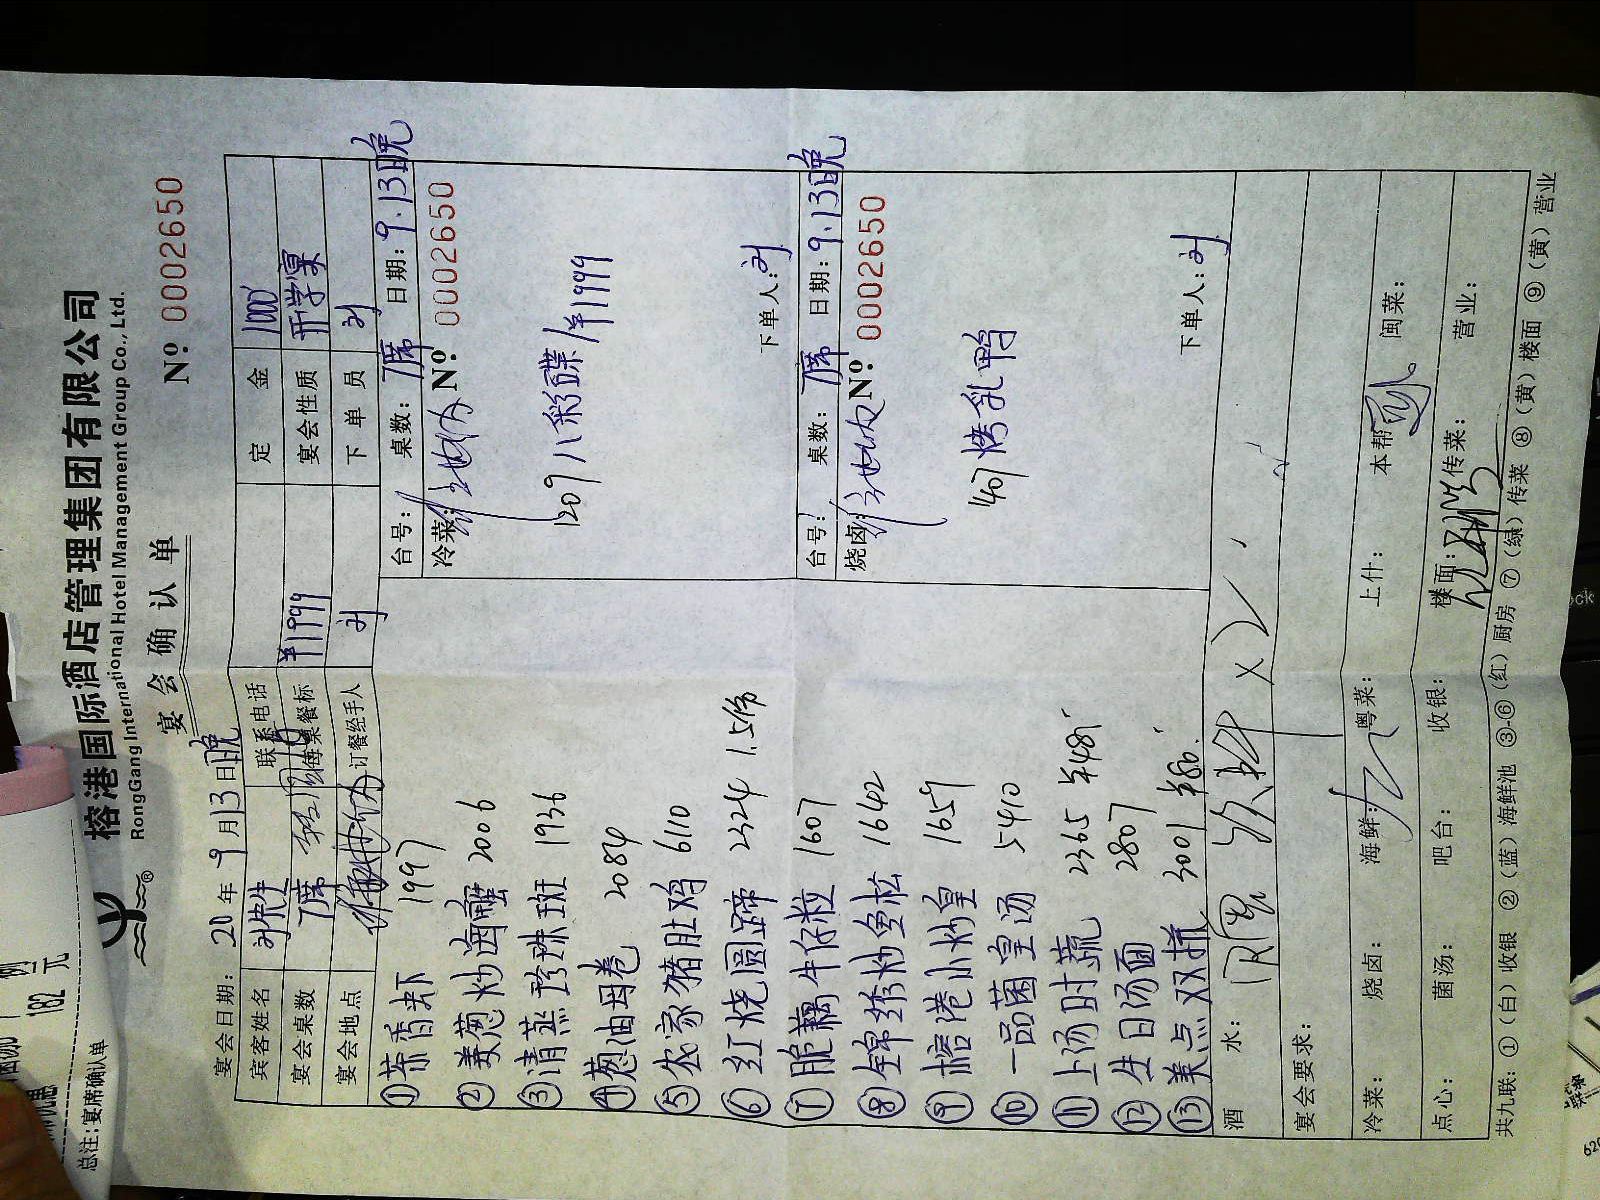 榕港国际酒店管理集团有限公司
RongGang International Hotel Management Group Co., Ltd.
宴会确认单
Nº 0002650
宴会日期: 20 年 9 月 13 日 晚
宾客姓名 刘先生 联系电话 定金 1000
宴会桌数 7席 每桌餐标 ¥1999 宴会性质 开学宴
宴会地点 订餐经手人 刘 下单员 刘
①茶香虾 1997
②姜葱炒海蟹 2006
③清蒸珍珠斑 1936
④葱油母卷 2084
⑤农家猪肚鸡 6110
⑥红烧圆蹄 2324 1.5份
⑦脆藕牛仔粒 1607
⑧锦绣炒鱼松 1642
⑨榕港小炒皇 1659
⑩一品菌皇汤 5410
⑪上汤时蔬 2365 ¥48
⑫生日汤面 2807
⑬美点双拼 3001 ¥86
台号: 桌数: 7席 日期: 9.13晚
冷菜: Nº 0002650
1209 八彩碟 ¥1999
下单人: 刘
台号: 桌数: 7席 日期: 9.13晚
烧卤: Nº 0002650
1407 烤乳鸭
下单人: 刘
酒水:
宴会要求:
冷菜: 烧卤: 海鲜: 粤菜: 上什: 本帮: 闽菜:
点心: 菌汤: 吧台: 收银: 楼面: 传菜: 营业:
共九联: ①(白)收银 ②(蓝)海鲜池 ③-⑥(红)厨房 ⑦(绿)传菜 ⑧(黄)楼面 ⑨(黄)营业
总注: 宴席确认单
182 元